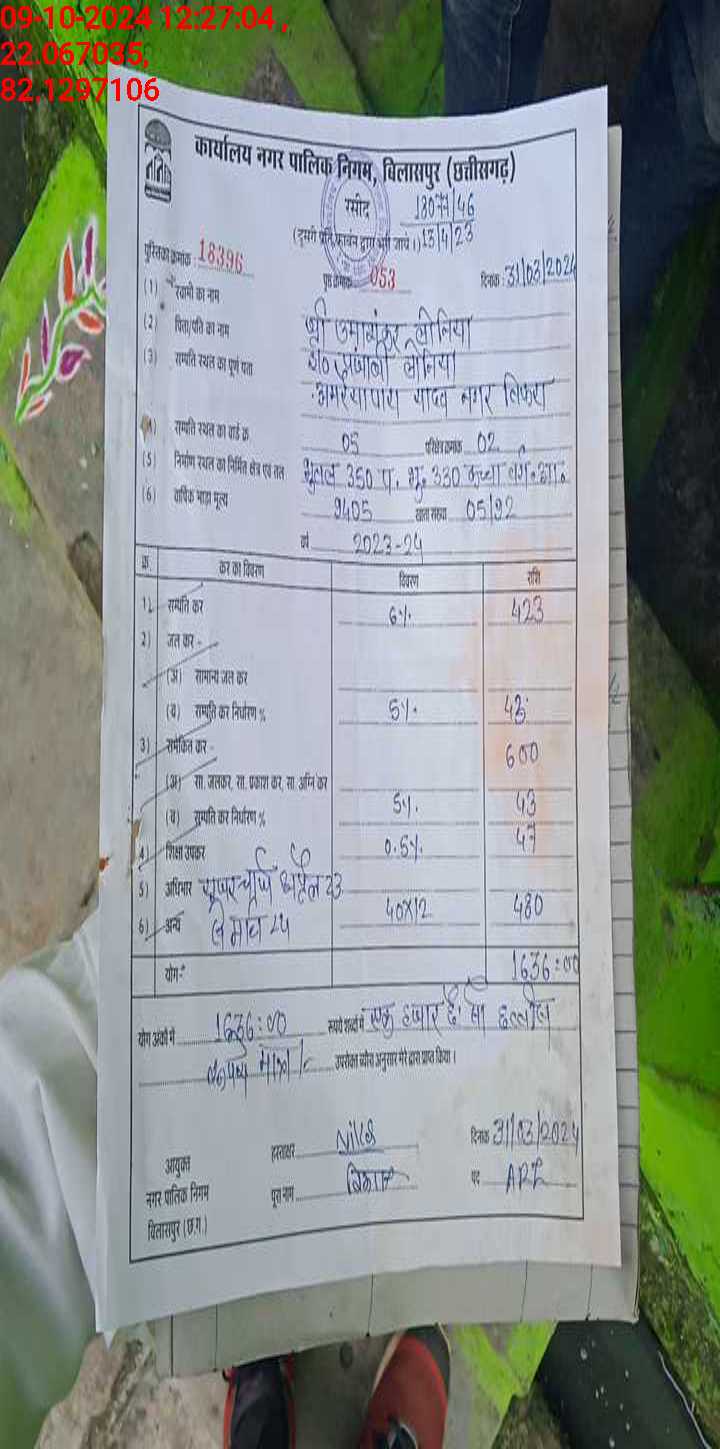 09-10-2024 12:27:04 ,
22.067035,
82.1297106
कार्यालय नगर पालिक निगम, बिलासपुर (छत्तीसगढ़)
रसीद 18071/46
(दूसरी प्रति कार्बन द्वारा भरी जाय।) 13/4/23
पुस्तिका क्रमांक 18396 पृष्ठ क्रमांक 053 दिनांक : 31/03/2024
(1) स्वामी का नाम श्री उमाशंकर लोनिया
(2) पिता/पति का नाम लोनिया
(3) सम्पत्ति स्थल का पूर्ण पता यादव नगर
(4) सम्पत्ति स्थल का वार्ड क्र. 05 परिक्षेत्र क्रमांक 02
(5) निर्माण स्थल का निर्मित क्षेत्र एवं तल भूतल 350 प. भू. 330 कच्चा
(6) वार्षिक भाड़ा मूल्य 9405 खाता संख्या 05/92
वर्ष 2023-24
क्र. कर का विवरण विवरण राशि
1) सम्पत्ति कर 6% 423
2) जल कर -
(अ) सामान्य जल कर
(ब) सम्पत्ति कर निर्धारण % 5% 43
3) समेकित कर - 600
(अ) सा. जलकर, सा. प्रकाश कर, सा. अग्नि कर
(ब) सम्पत्ति कर निर्धारण % 5% 43
4) शिक्षा उपकर 0.5% 47
5) अधिभार यूजर चार्ज अप्रैल 23
6) अन्य से मार्च 24 40X12 480
योग:- 1636=00
योग अंकों में 1636=00 रूपये शब्दों में एक हजार छै: सौ छत्तीस
रूपये मात्र /- उपरोक्त ब्यौरा अनुसार मेरे द्वारा प्राप्त किया।
हस्ताक्षर दिनांक 31/03/2024
आयुक्त
नगर पालिक निगम पूरा नाम पद
बिलासपुर (छ.ग.)